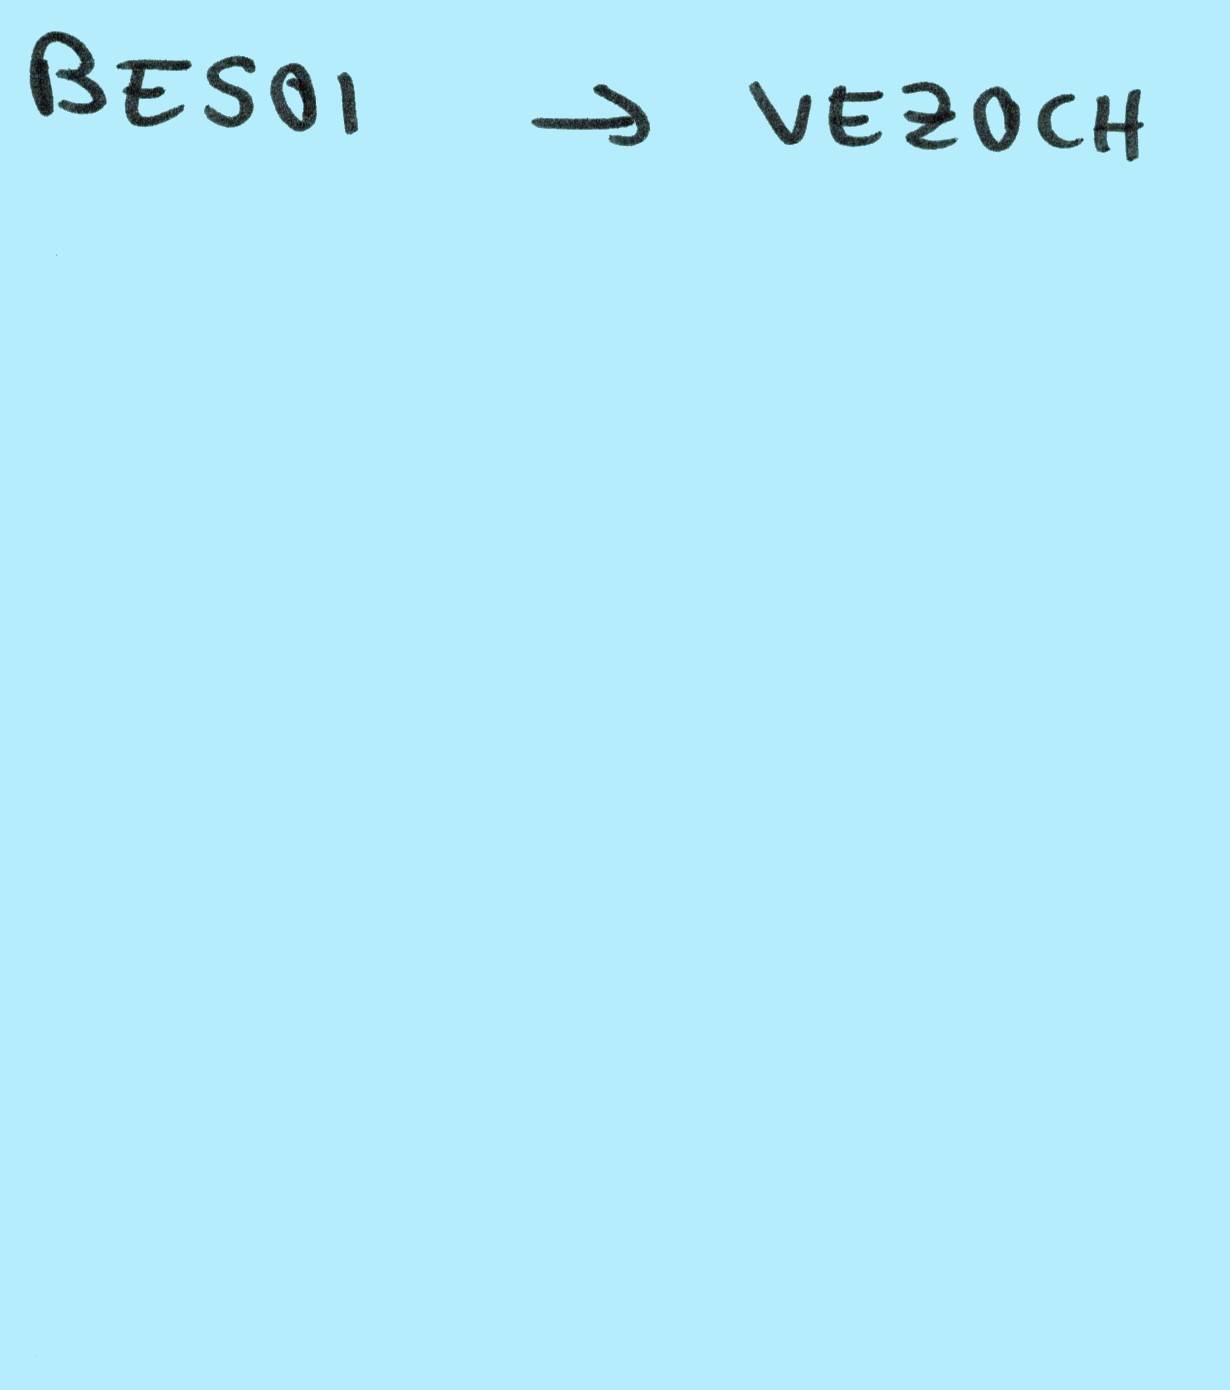 BESOI → VEZOCH